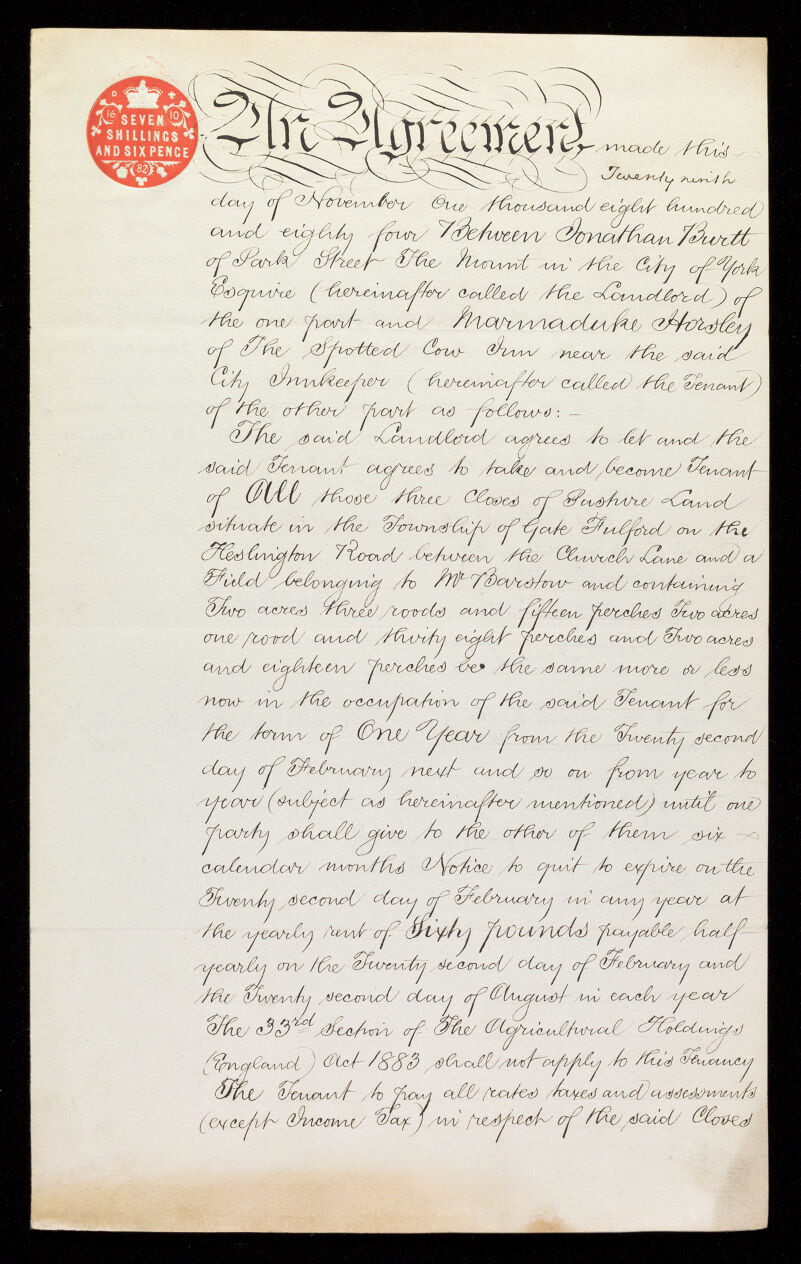 D
16 10
SEVEN
SHILLINGS
AND SIX PENCE
82
An Agreement made this
Twenty ninth
day of November One thousand eight hundred
and eighty four Between Jonathan Burtt
of Park Street The Mount in the City of York
Esquire (hereinafter called the Landlord) of
the one part and Marmaduke Horsley
of The Spotted Cow Inn near the said
City Innkeeper (hereinafter called the Tenant)
of the other part as follows: –
The said Landlord agrees to let and the
said Tenant agrees to take and become Tenant
of All those three Closes of Pasture Land
situate in the Township of Gate Fulford on the
Heslington Road between the Church Lane and a
Field belonging to Mr Barstow and containing
Two acres three roods and fifteen perches Two acres
one rood and thirty eight perches and Two acres
and eighteen perches be the same more or less
now in the occupation of the said Tenant for
the term of One Year from the Twenty second
day of February next and so on from year to
year (subject as hereinafter mentioned) until one
party shall give to the other of them six
calendar months Notice to quit to expire on the
Twenty second day of February in any year at
the yearly rent of Sixty pounds payable half
yearly on the Twenty second day of February and
the Twenty second day of August in each year
The 33rd Section of The Agricultural Holdings
(England) Act 1883 shall not apply to this Tenancy
The Tenant to pay all rates taxes and assessments
(except Income Tax) in respect of the said Closes